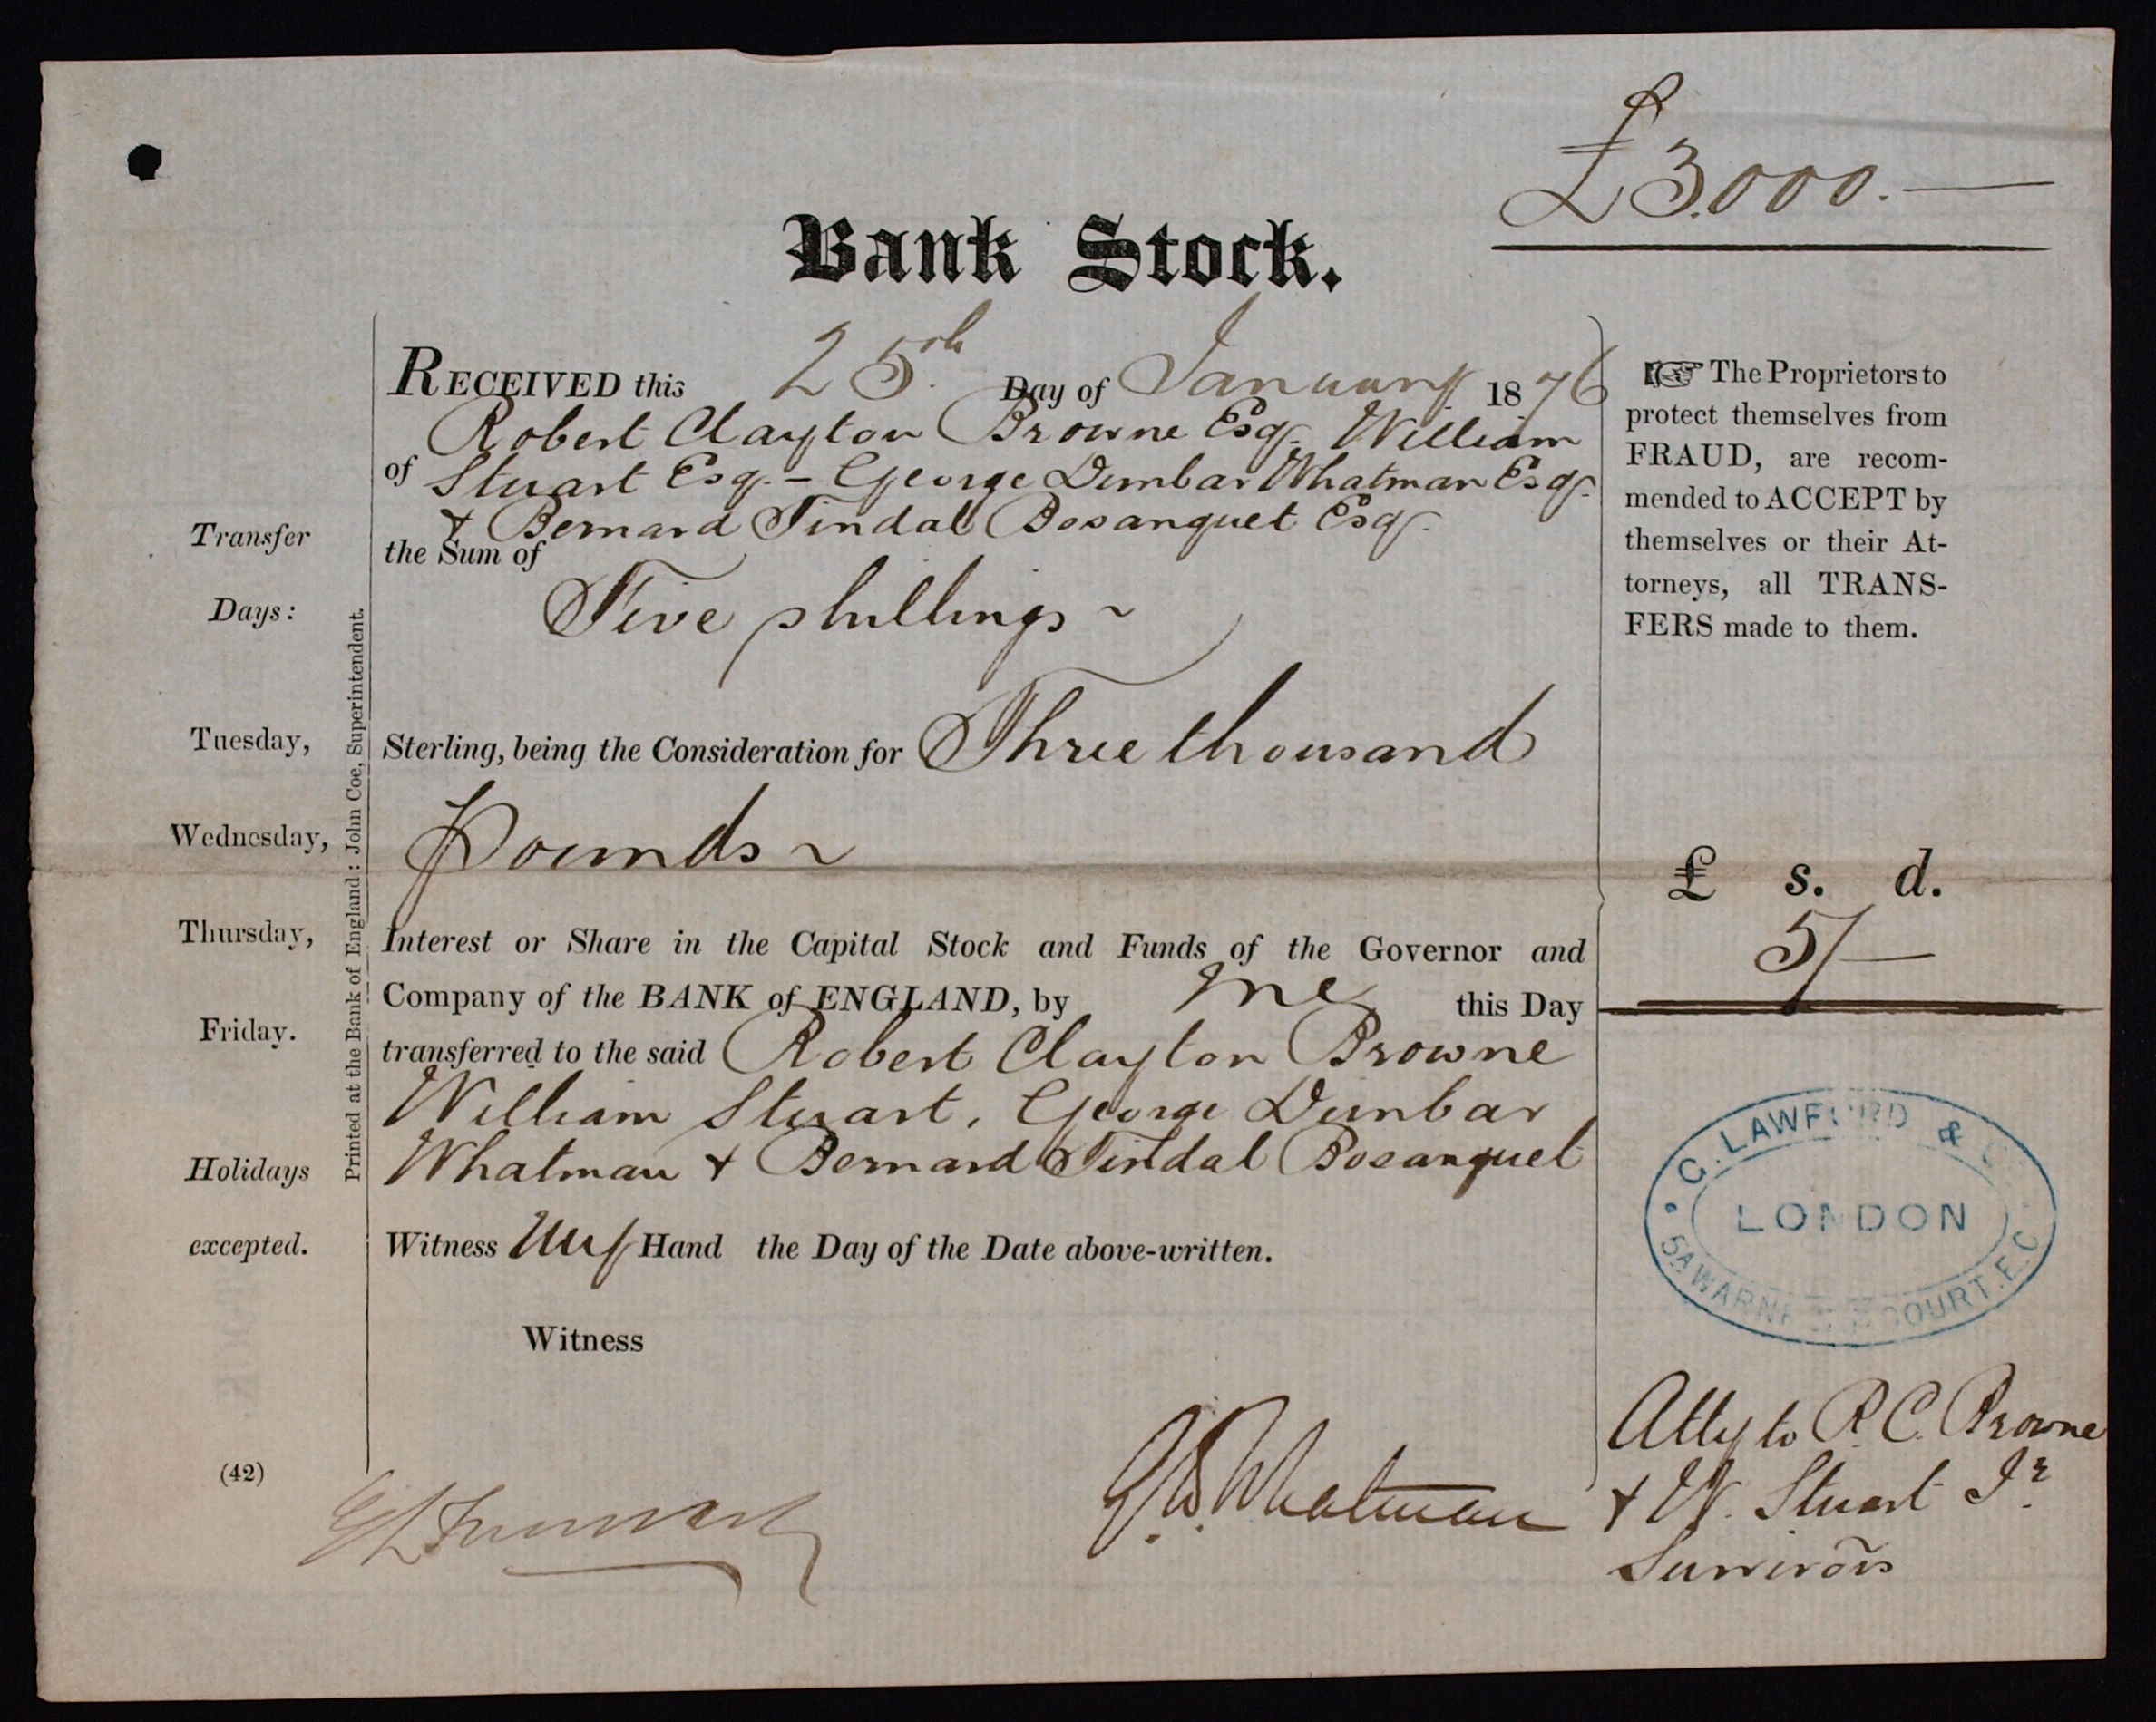 £3.000.—
Bank Stock.
RECEIVED this 25th Day of January 1876
Robert Clayton Browne Esqr. William
of Stuart Esq. – George Dunbar Whatman Esqr.
+ Bernard Tindal Bosanquet Esqr.
the Sum of
Five shillings ~
Sterling, being the Consideration for Three thousand
Pounds ~
Interest or Share in the Capital Stock and Funds of the Governor and
Company of the BANK of ENGLAND, by me this Day
transferred to the said Robert Clayton Browne
William Stuart, George Dunbar
Whatman + Bernard Tindal Bosanquet
Witness My Hand the Day of the Date above-written.
Witness
G.D. Whatman
Transfer
Days:
Tuesday,
Wednesday,
Thursday,
Friday.
Holidays
excepted.
(42)
Printed at the Bank of England: John Coe, Superintendent.
☞ The Proprietors to
protect themselves from
FRAUD, are recom-
mended to ACCEPT by
themselves or their At-
torneys, all TRANS-
FERS made to them.
£ s. d.
5/—
C. LAWFORD &
LONDON
5A WARN COURT. E.C.
Atty to R. C. Browne
+ W. Stuart Jr.
Survivors